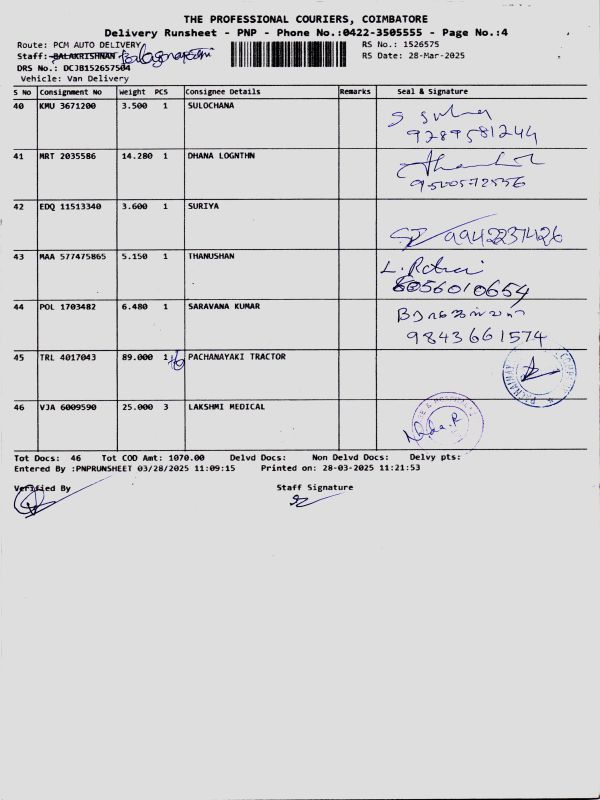 THE PROFESSIONAL COURIERS, COIMBATORE
Delivery Runsheet - PNP - Phone No.:0422-3505555 - Page No.:4
Route: PCM AUTO DELIVERY
RS No.: 1526575
Staff: BALAKRISHNAN
RS Date: 28-Mar-2025
DRS No.: DCJB152657504
Vehicle: Van Delivery
S No Consignment No Weight PCS Consignee Details Remarks Seal & Signature
40 KMU 3671200 3.500 1 SULOCHANA
9289581244
41 MRT 2035586 14.280 1 DHANA LOGNTHN
42 EDQ 11513340 3.600 1 SURIYA
9942237426
43 MAA 577475865 5.150 1 THANUSHAN
8056010654
44 POL 1703482 6.480 1 SARAVANA KUMAR
9843661574
45 TRL 4017043 89.000 1 PACHANAYAKI TRACTOR
46 VJA 6009590 25.000 3 LAKSHMI MEDICAL
Tot Docs: 46 Tot COD Amt: 1070.00 Delvd Docs: Non Delvd Docs: Delvy pts:
Entered By :PNPRUNSHEET 03/28/2025 11:09:15 Printed on: 28-03-2025 11:21:53
Verified By Staff Signature